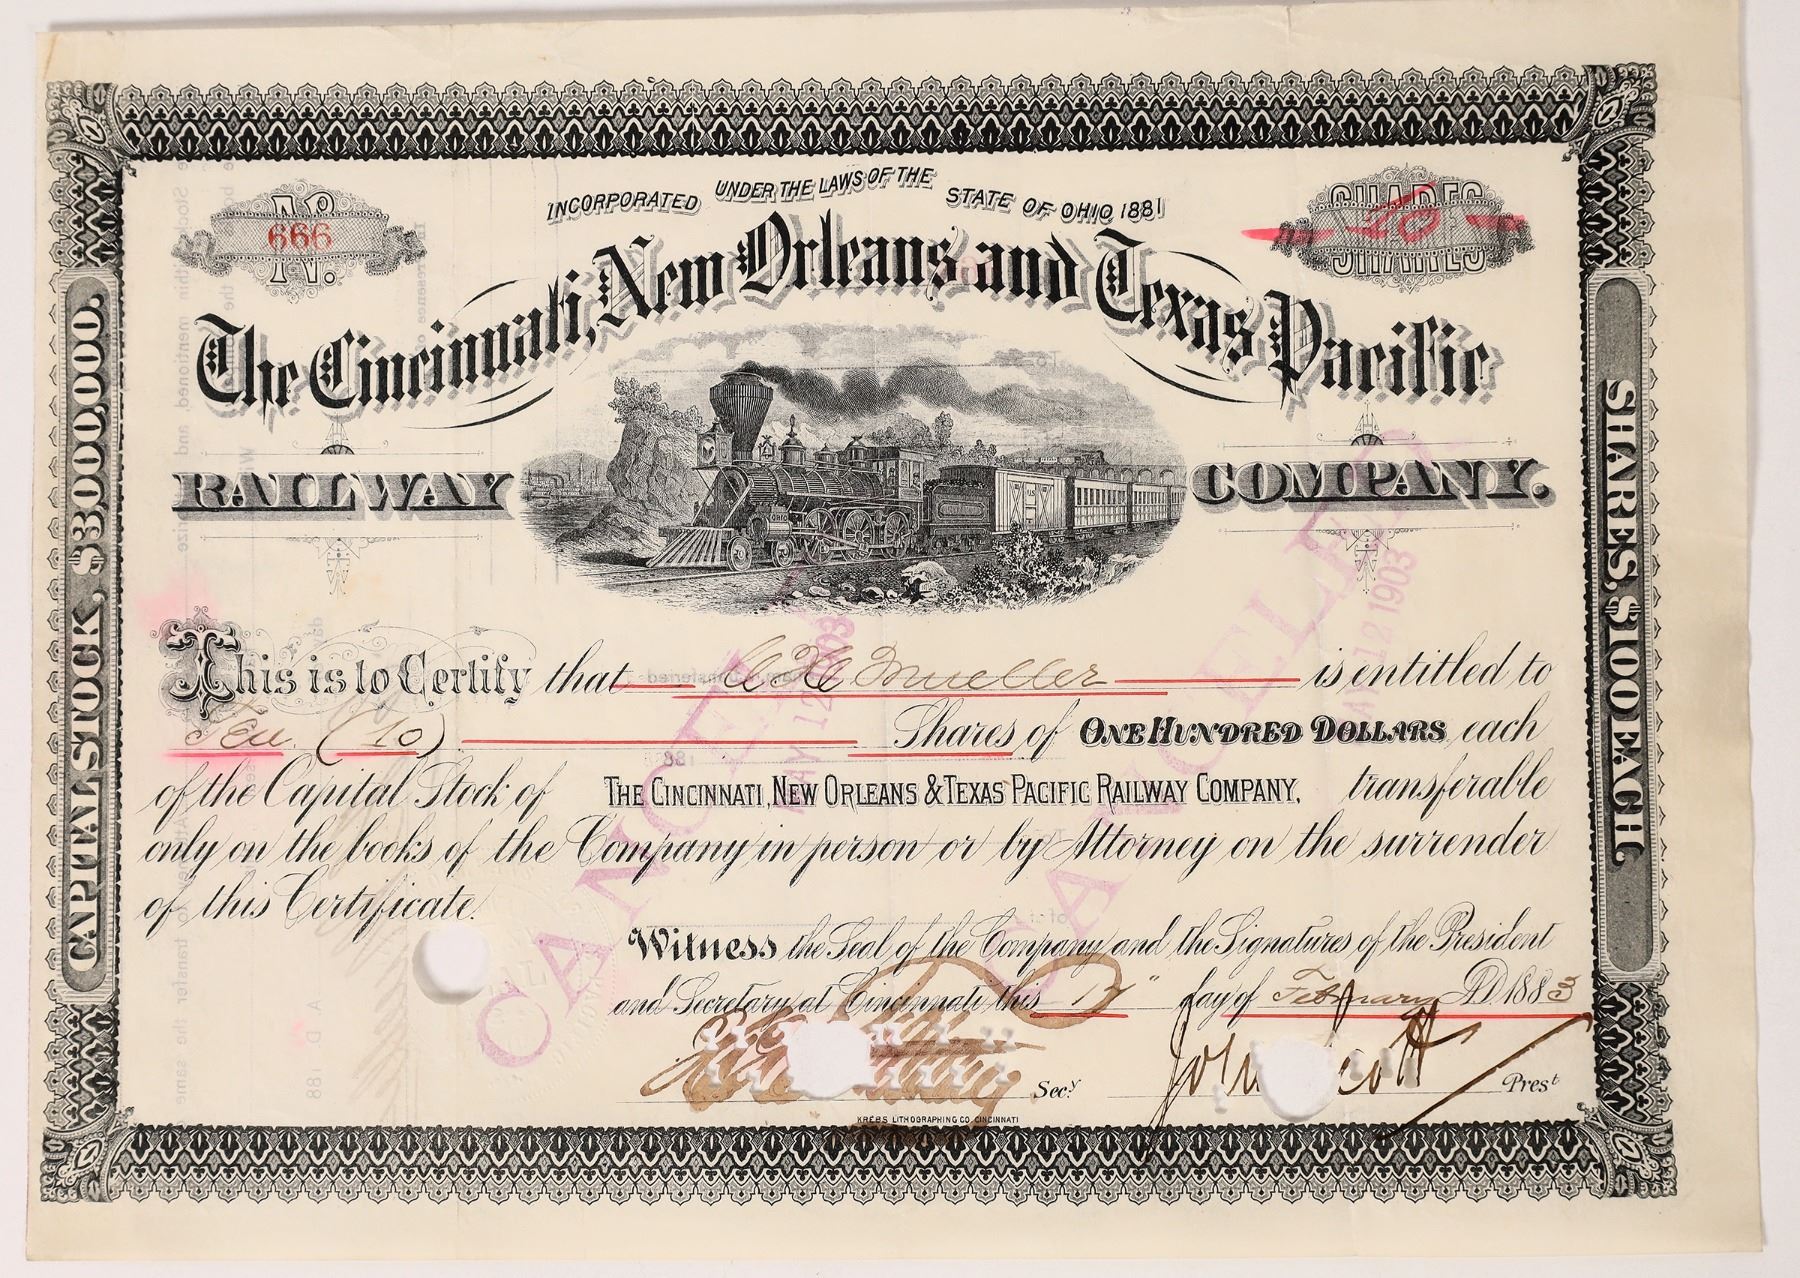 INCORPORATED UNDER THE LAWS OF THE STATE OF OHIO 1881
No.
666
SHARES
10
SHARES
The Cincinnati, New Orleans and Texas Pacific
RAILWAY COMPANY.
OHIO
CAPITAL STOCK, $3.000,000.
SHARES, $100 EACH.
This is to Certify that Mueller is entitled to
Ten (10) Shares of ONE HUNDRED DOLLARS each
of the Capital Stock of THE CINCINNATI, NEW ORLEANS & TEXAS PACIFIC RAILWAY COMPANY, transferable
only on the books of the Company in person or by Attorney on the surrender
of this Certificate.
Witness the Seal of the Company and the Signatures of the President
and Secretary at Cincinnati, this 17" day of February AD 1883
Secy
John Scott Prest
KREBS LITHOGRAPHING CO. CINCINNATI
CANCELLED
MAY 12 1903
CANCELLED
MAY 12 1903